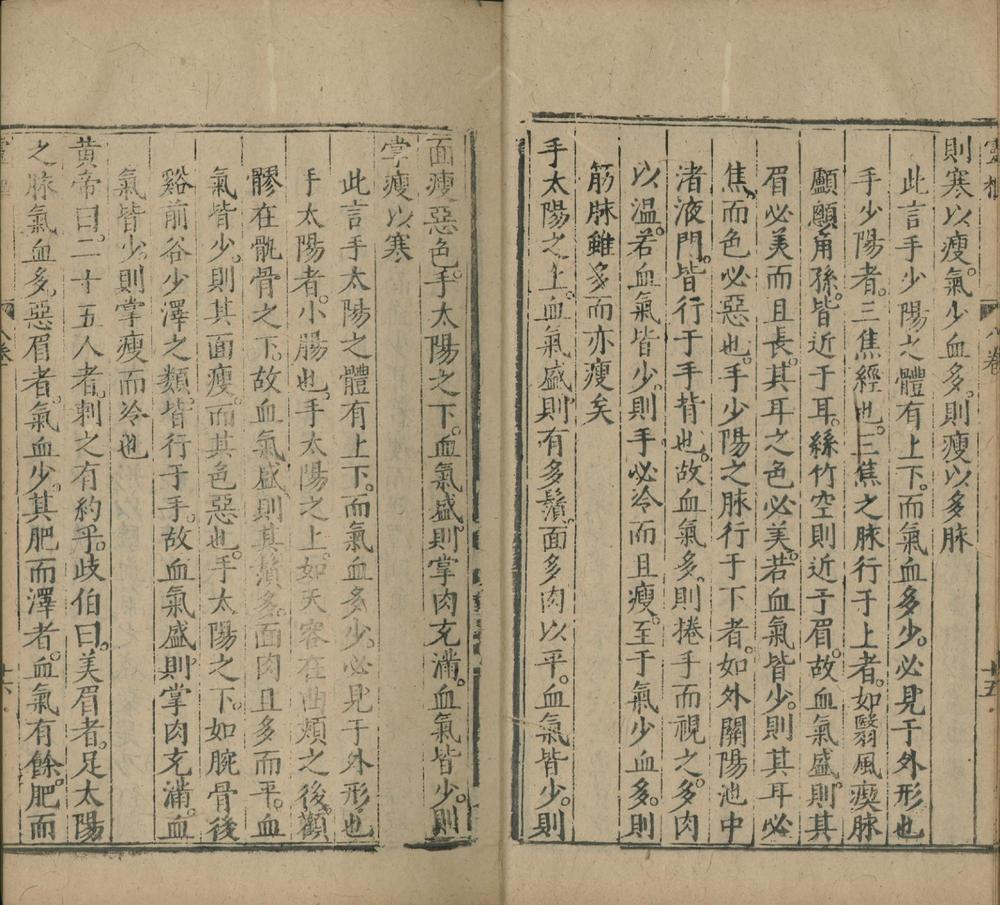 靈樞 八卷 十五
則寒以瘦。氣少血多。則瘦以多脉
此言手少陽之體有上下。而氣血多少。必見于外形也
手少陽者。三焦經也。三焦之脉行于上者。如翳風瘈脉
顱顖角孫。皆近于耳。絲竹空則近于眉。故血氣盛。則其
眉必美而且長。其耳之色必美。若血氣皆少。則其耳必
焦。而色必惡也。手少陽之脉行于下者。如外關陽池中
渚液門。皆行于手背也。故血氣多。則捲手而視之。多肉
以温。若血氣皆少。則手必冷而且瘦。至于氣少血多。則
筋脉雖多而亦瘦矣
手太陽之上。血氣盛。則有多鬚。面多肉以平。血氣皆少。則
面瘦惡色。手太陽之下。血氣盛。則掌肉充滿。血氣皆少。則
掌瘦以寒
此言手太陽之體有上下。而氣血多少。必見于外形也
手太陽者。小腸也。手太陽之上。如天容在曲頰之後。顴
髎在䪼骨之下。故血氣盛則其鬚多。面肉且多而平。血
氣皆少。則其面瘦。而其色惡也。手太陽之下。如腕骨後
谿前谷少澤之類。皆行于手。故血氣盛則掌肉充滿。血
氣皆少。則掌瘦而冷也
黃帝曰。二十五人者。刺之有約乎。歧伯曰。美眉者。足太陽
之脉氣血多。惡眉者。氣血少。其肥而澤者。血氣有餘。肥而
八卷 十六